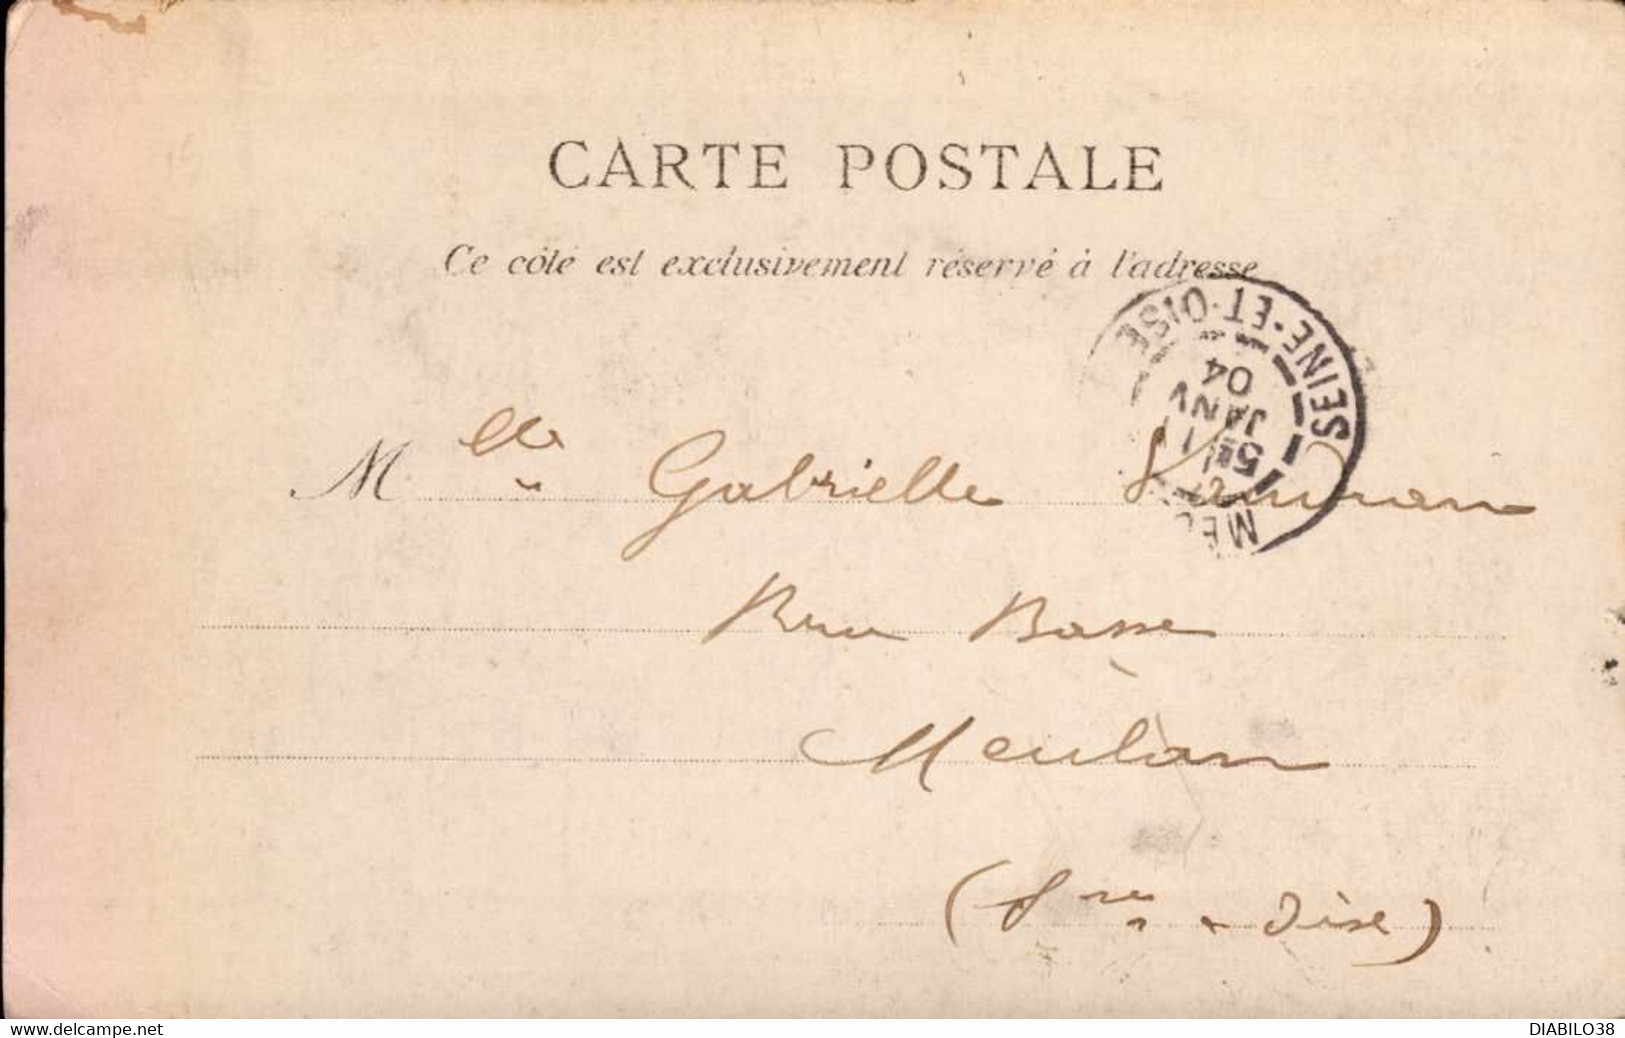 CARTE POSTALE
Ce côté est exclusivement réservé à l'adresse
SEINE-ET-OISE
5E
11
JANV
04
Mlle Gabrielle
Rue Basse
Meulan
(Sne & Oise)
www.delcampe.net
DIABILO38